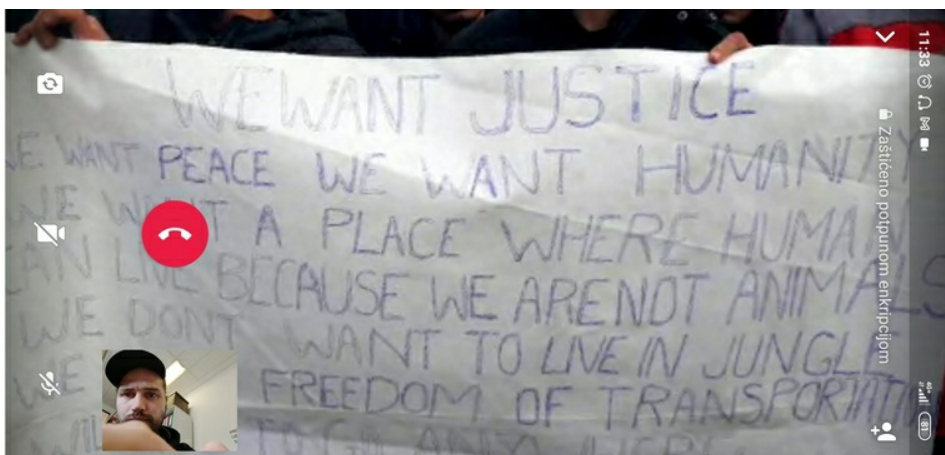 WE WANT JUSTICE
WE WANT PEACE WE WANT HUMANITY
WE WANT A PLACE WHERE HUMAN
CAN LIVE BECAUSE WE ARE NOT ANIMALS
WE DONT WANT TO LIVE IN JUNGLE
WE FREEDOM OF TRANSPORTATI
TO
11:33
Zaštićeno potpunom enkripcijom
4G+
81